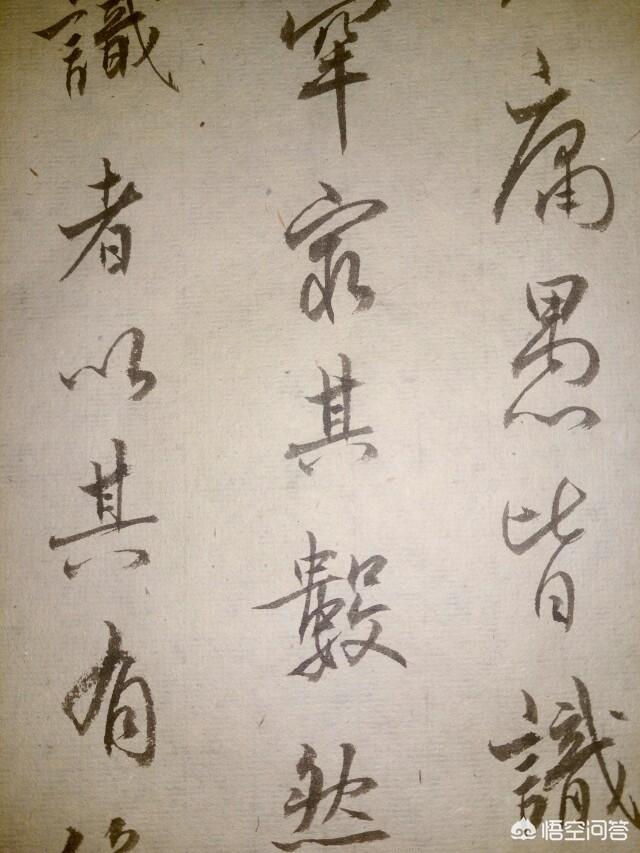 庸愚皆識
罕窮其數然
識者以其有
悟空问答